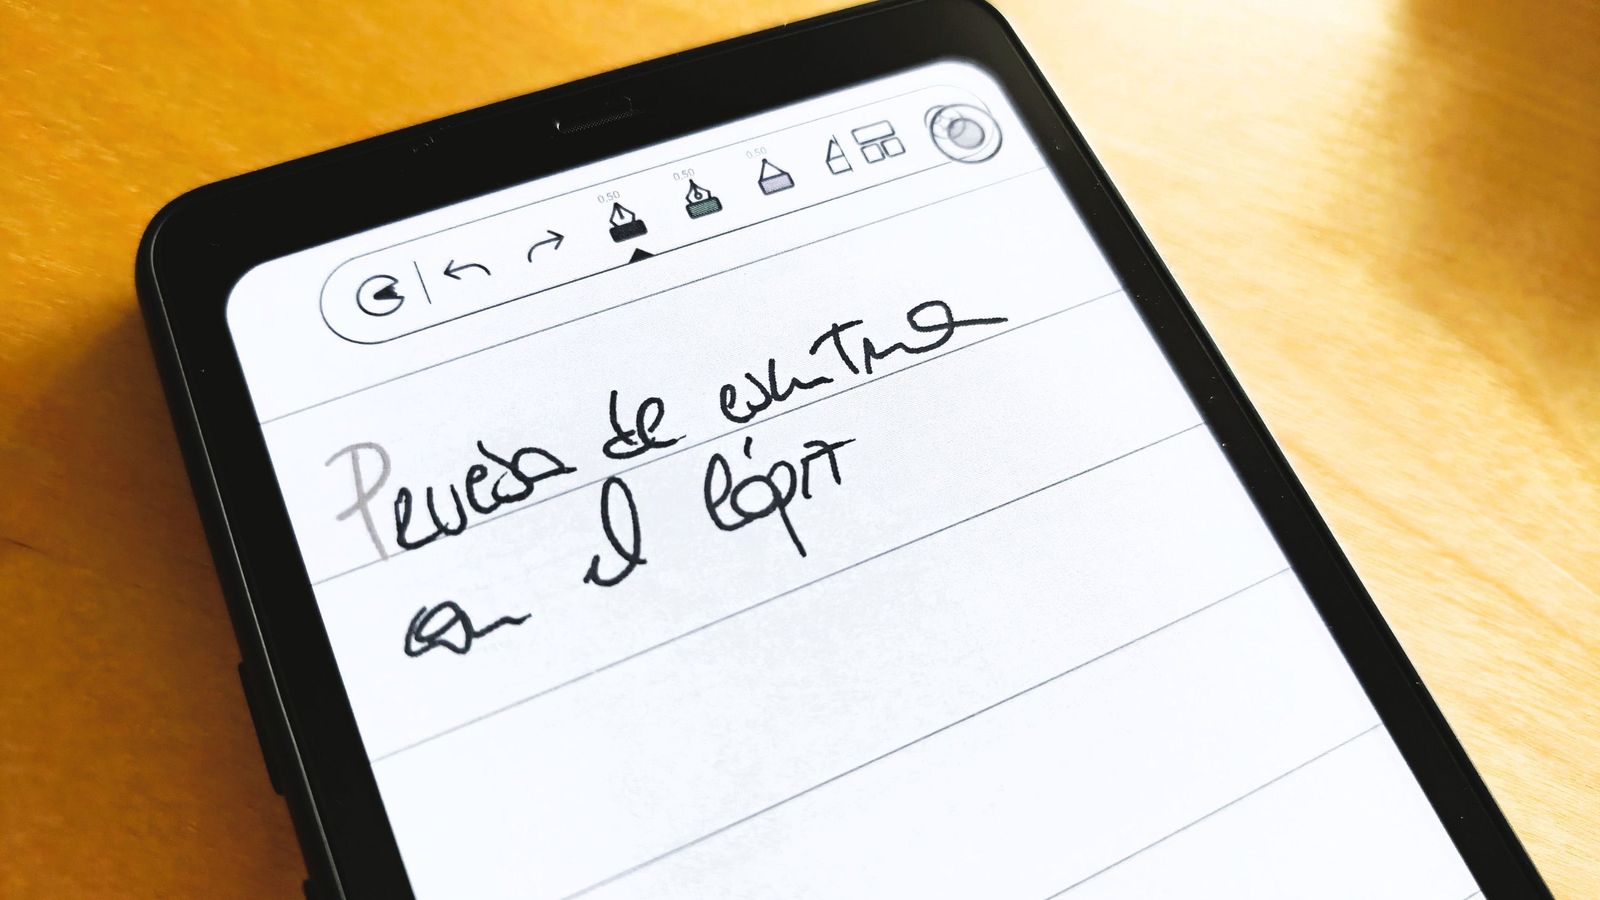 0.50
0.50
0.50
Prueba de escritura
con el lápiz